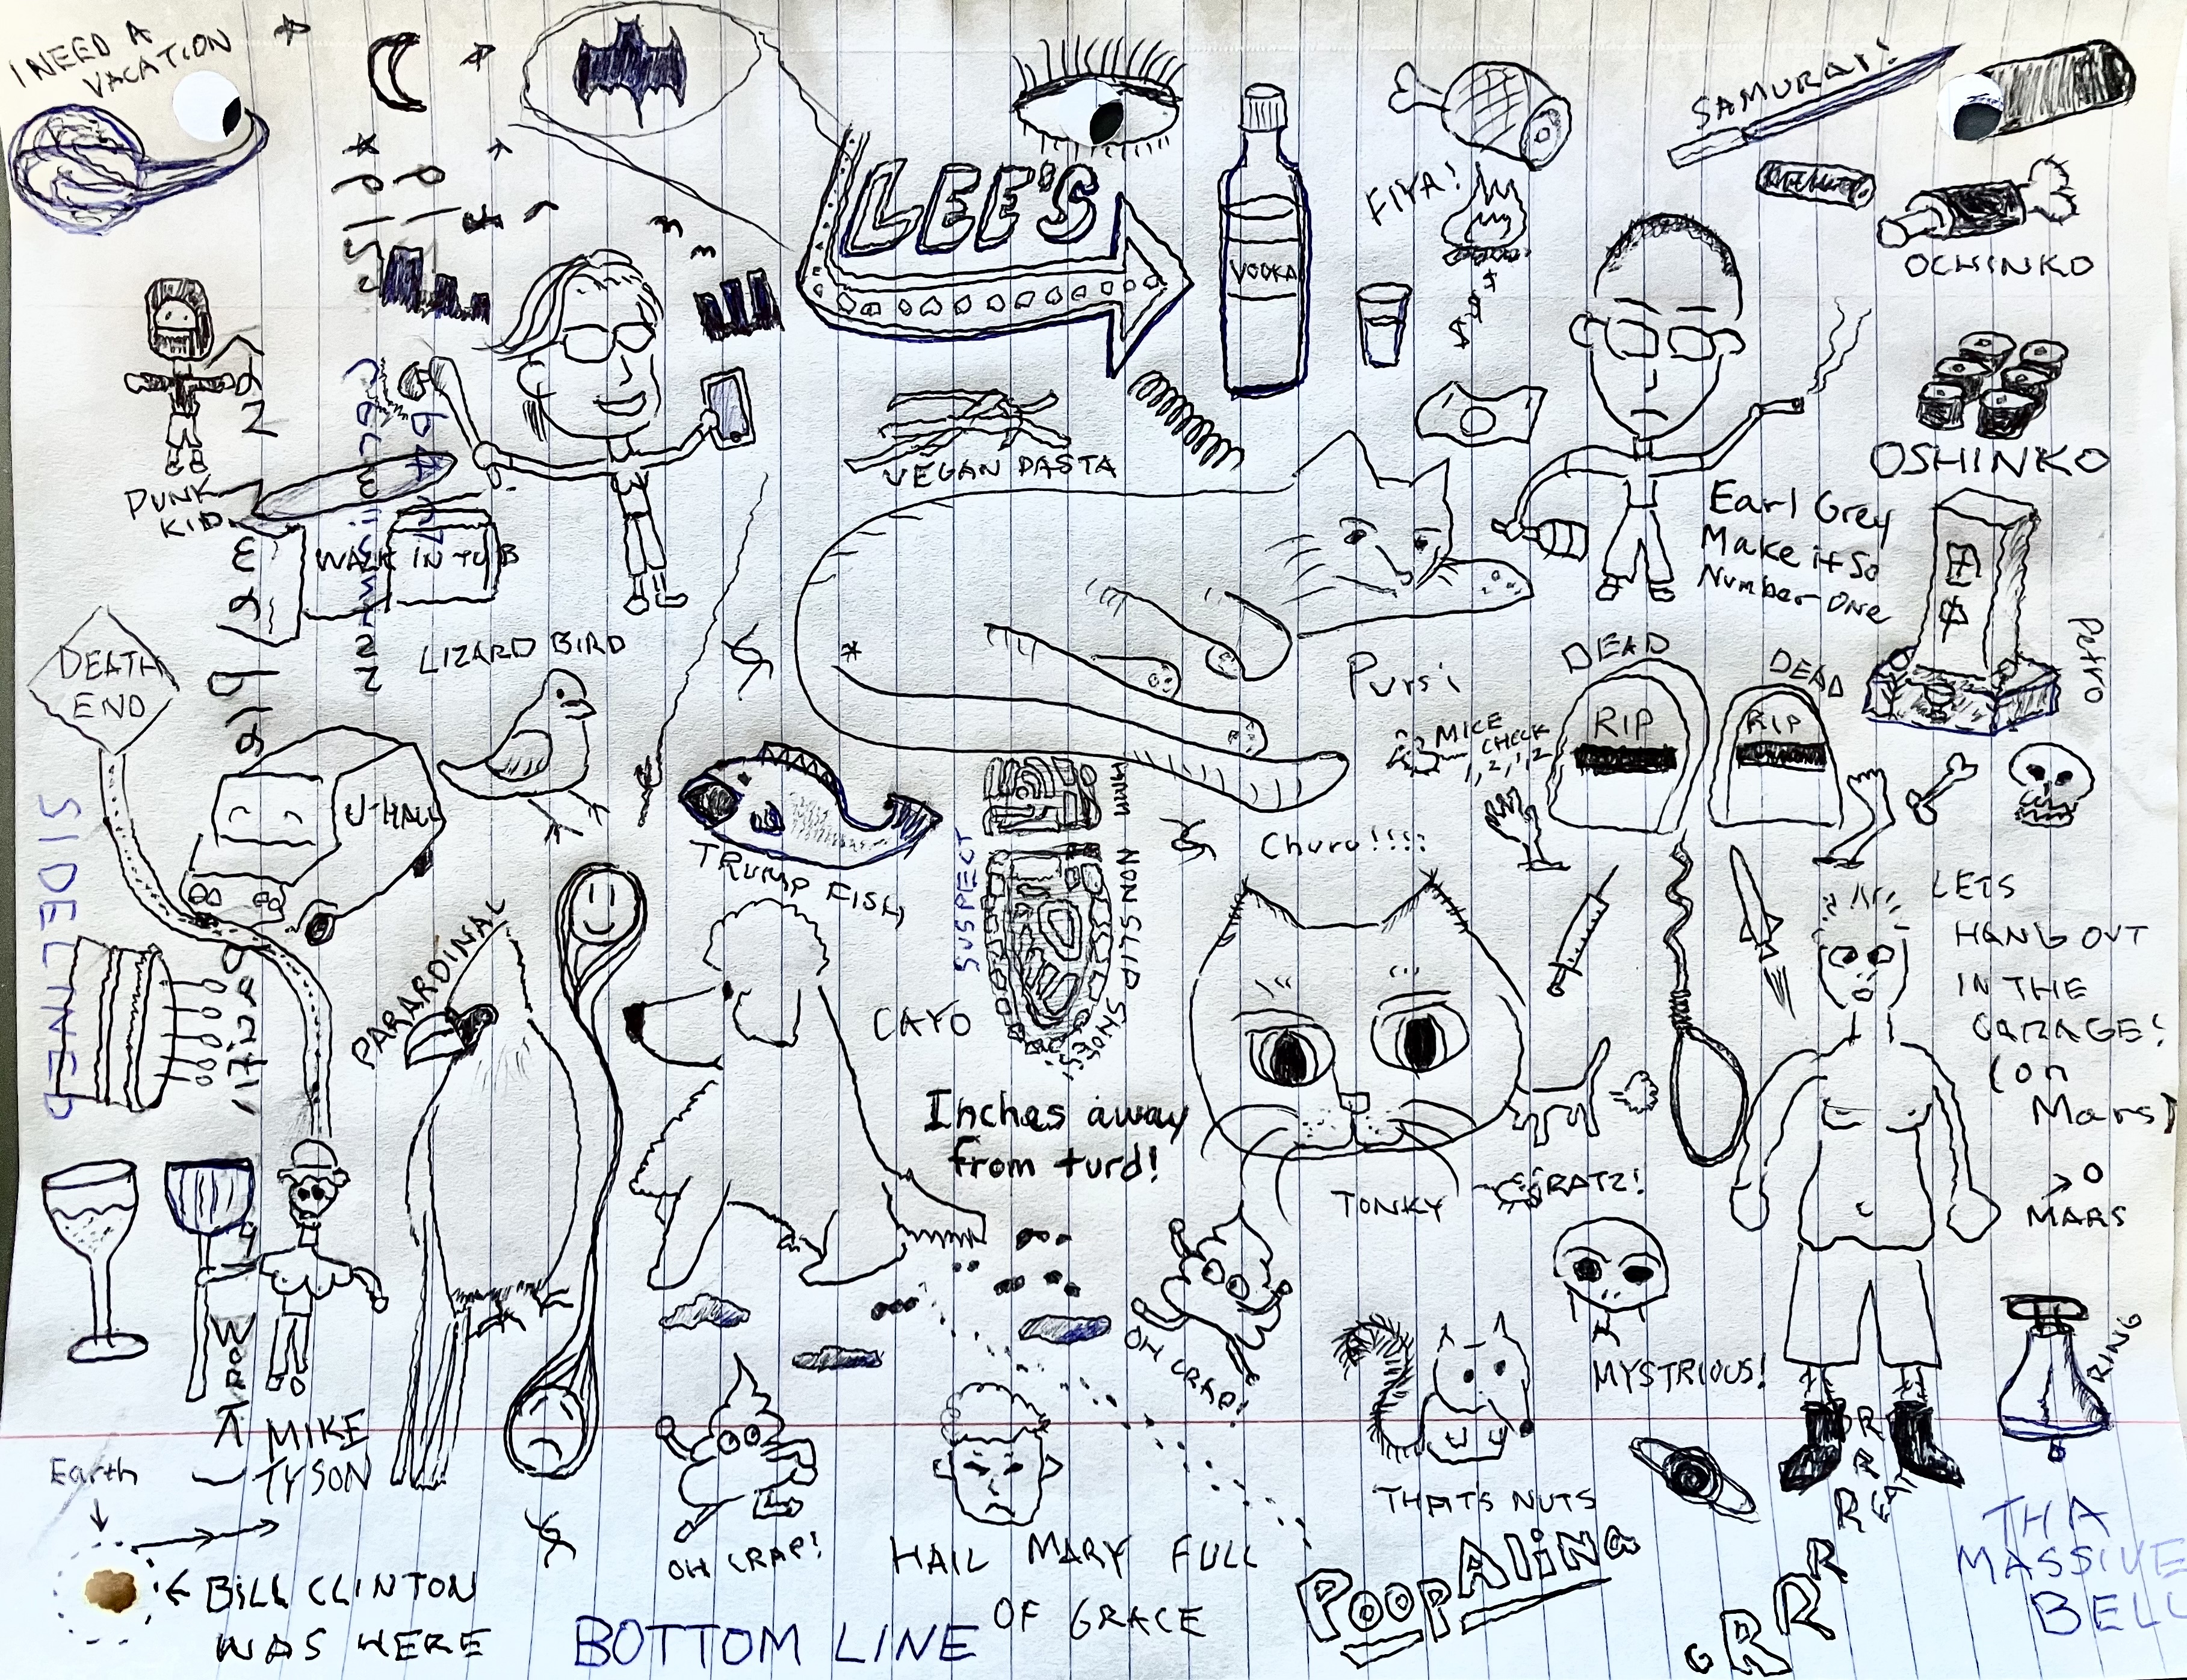 I NEED A
VACATION
SAMURAI!
LEE'S
FIYA!
VODKA
OCHINKO
$
$
$
VEGAN PASTA
OSHINKO
PUNK
KID
Earl Grey
Make it So
Number One
WALK IN TUB
LIZARD BIRD
DEATH
END
Pursi
DEAD
DEAD
RIP
RIP
Petro
MICE
CHECK
1, 2, 1, 2
U-HALL
SIDELINED
TRUMP FISH
SUSPECT
NON SLIP SHOES
Churu!!!!
LETS
HANG OUT
IN THE
GARAGE!
(on
Mars)
PARARDINAL
CAYO
Inches away
from turd!
TONKY
RATZ!
MARS
MYSTRIOUS!
RING
OH CRAP!
MIKE
TYSON
Earth
THATS NUTS
OH CRAP!
HAIL MARY FULL
OF GRACE
BILL CLINTON
WAS HERE
BOTTOM LINE
POOPALiNa
GRRRR
THA
MASSIVE
BELL